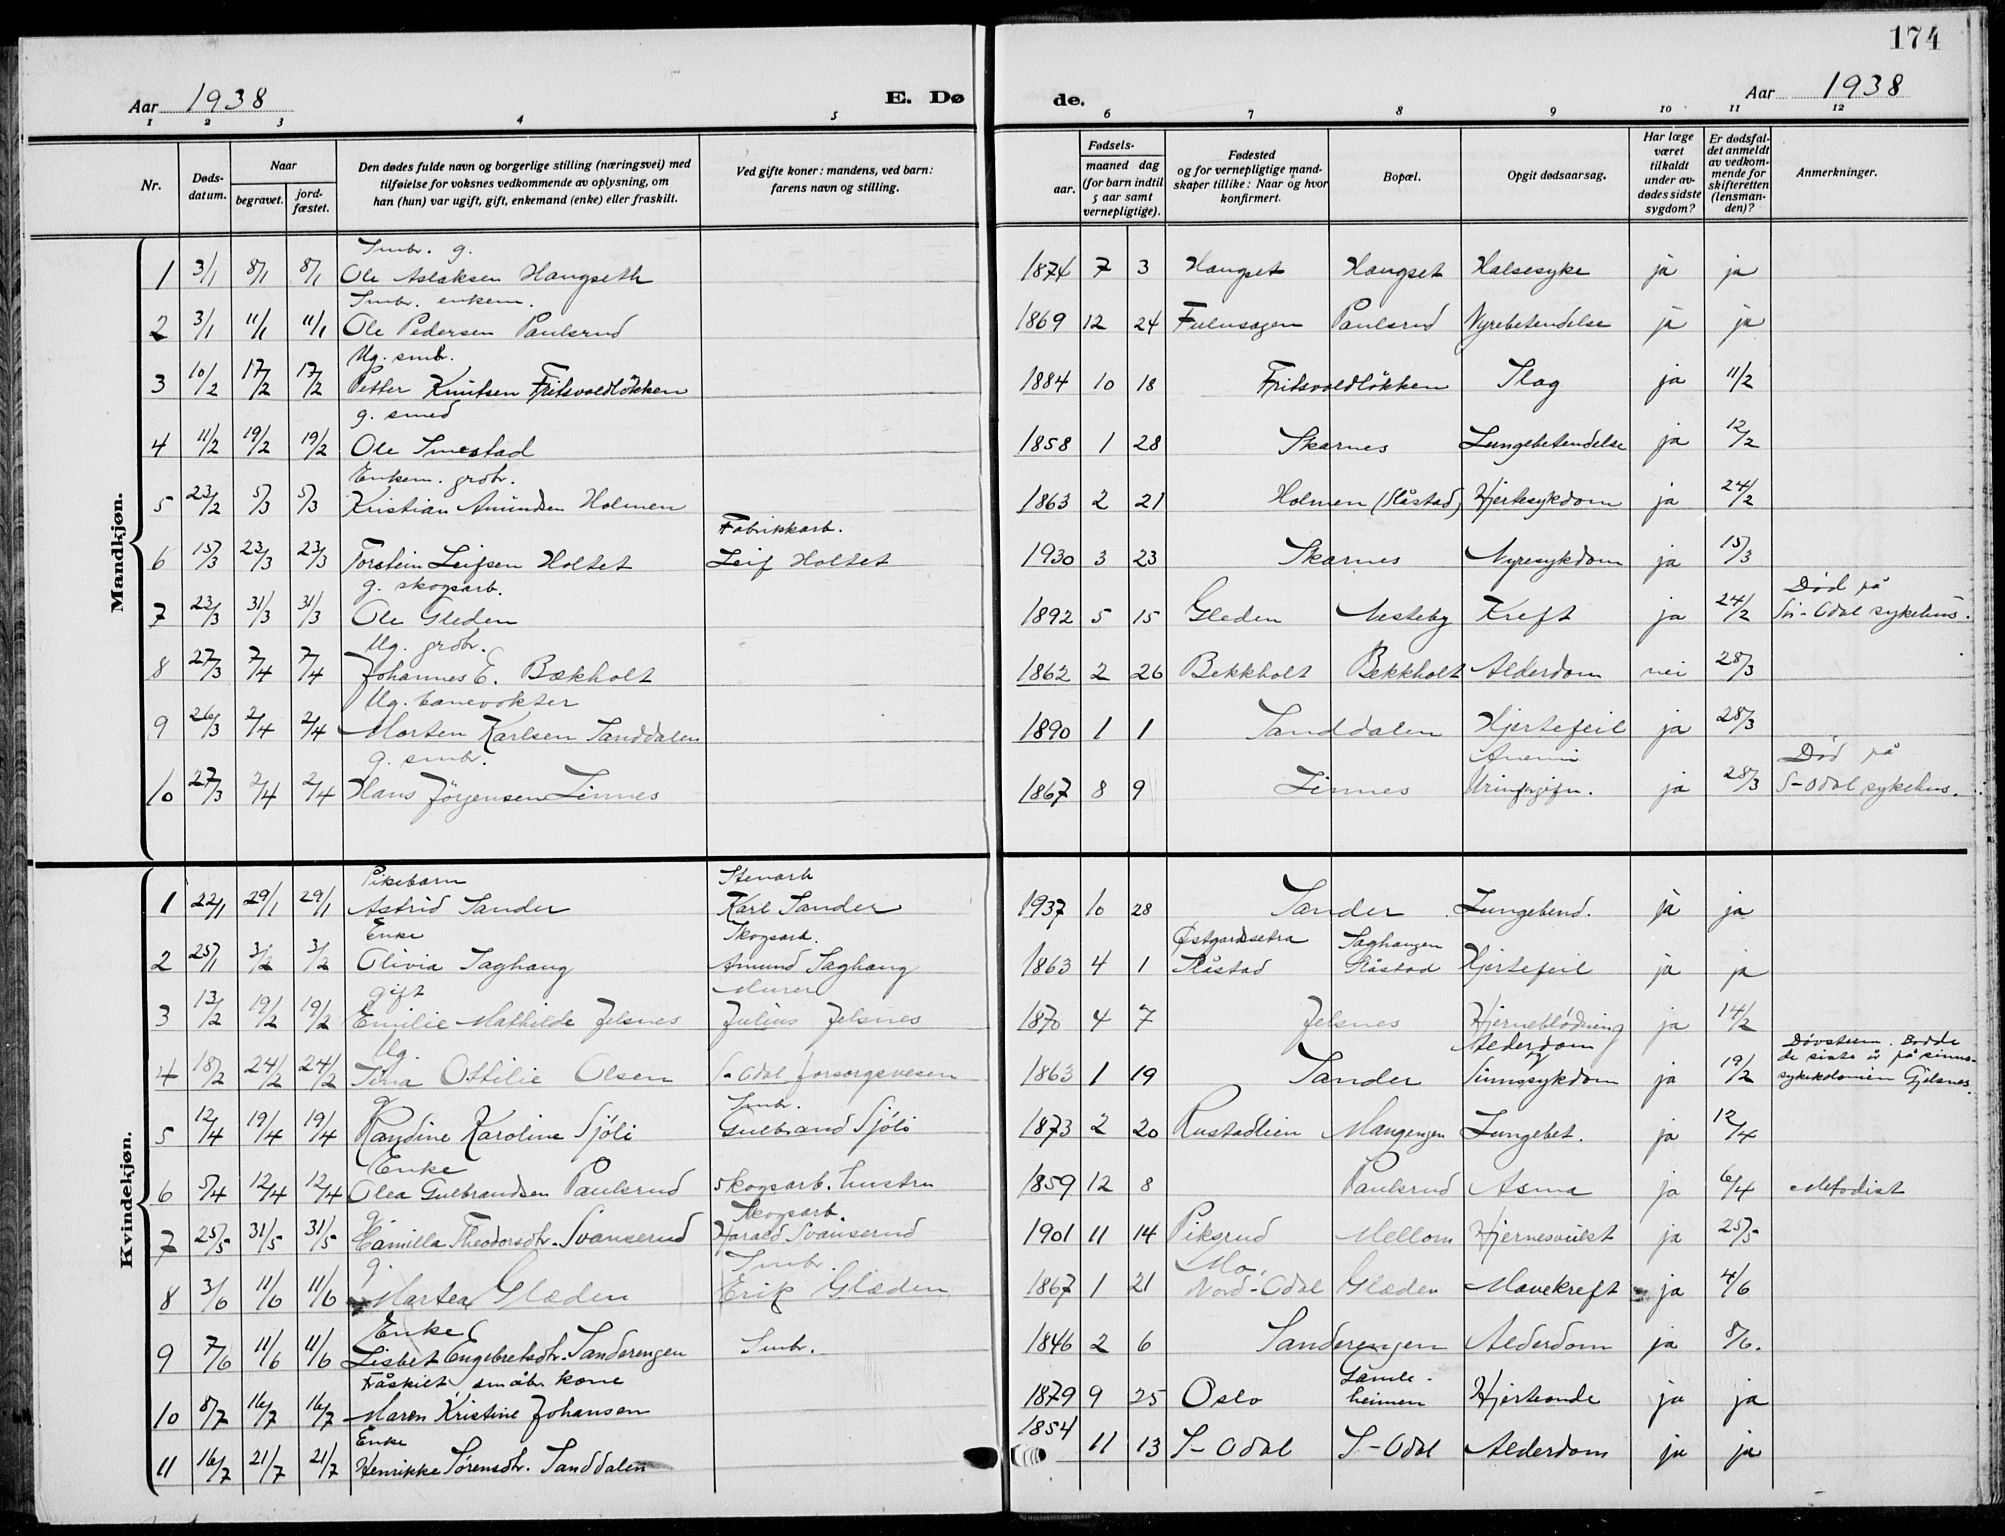 174
Aar 1938
E. Dø
de.
Aar 1938
1 2 3 4 5 6 7 8 9 10 11 12
Nr.
Døds-
datum.
Naar
begravet.
jord-
fæstet.
Den dødes fulde navn og borgerlige stilling (næringsvei) med
tilføielse for voksnes vedkommende av oplysning, om
han (hun) var ugift, gift, enkemand (enke) eller fraskilt.
Ved gifte koner: mandens, ved barn:
farens navn og stilling.
Fødsels-
aar.
maaned dag
(for barn indtil
5 aar samt
vernepligtige).
Fødested
og for vernepligtige mand-
skaper tillike: Naar og hvor
konfirmert.
Bopæl.
Opgit dødsaarsag.
Har læge
været
tilkaldt
under av-
dødes sidste
sygdom?
Er dødsfal-
det anmeldt
av vedkom-
mende for
skifteretten
(lensman-
den)?
Anmerkninger.
Mandkjøn.
Smbr. g.
1 3/1 8/1 8/1 Ole Aslaksen Haugseth 1874 7 3 Haugset Haugset Halsesyke ja ja
Smbr. enkem.
2 3/1 11/1 11/1 Ole Pedersen Paulsrud 1869 12 24 Fulusagen Paulsrud Nyrebetendelse ja ja
Ug. smbr.
3 10/2 17/2 17/2 Petter Knutsen Fritsvoldløkken 1884 10 18 Fritsvoldløkken Slag ja 11/2
g. smed
4 11/2 19/2 19/2 Ole Smestad 1858 1 28 Skarnes Lungebetendelse ja 12/2
Enkem. grdbr.
5 23/2 5/3 5/3 Kristian Amundsen Holmen 1863 2 21 Holmen (Slåstad) Hjertesykdom ja 24/2
Fabrikkarb.
6 15/3 23/3 23/3 Torstein Leifsen Holtet Leif Holtet 1930 3 23 Skarnes Nyresykdom ja 15/3
g. skogsarb. Død på
7 23/3 31/3 31/3 Ole Gleden 1892 5 15 Gleden Nesteby Kreft ja 24/2 Sør-Odal sykehus.
Ug. grdbr.
8 27/3 7/4 7/4 Johannes E. Bækholt 1862 2 26 Bekkholt Bekkholt Alderdom nei 28/3
Ug. banevokter
9 26/3 2/4 2/4 Morten Karlsen Sanddalen 1890 1 1 Sanddalen Hjertefeil ja 28/3
g. smbr. Anemi Død på
10 27/3 2/4 2/4 Hans Jörgensen Linnes 1867 8 9 Linnes Urinforgifn. ja 28/3 S-Odal sykehus.
Kvindekjøn.
Pikebarn Stenarb
1 22/1 29/1 29/1 Astrid Sander Karl Sander 1937 10 28 Sander Lungebend. ja ja
Enke Skogsarb. Østgardsetra Saghaugen
2 25/1 3/2 3/2 Olivia Saghaug Amund Saghaug 1863 4 1 Slåstad Slåstad Hjertefeil ja ja
gift Murer
3 13/2 19/2 19/2 Emilie Mathilde Jelsnes Julius Jelsnes 1870 4 7 Jelsnes Hjerneblødning ja 14/2
Ug. Alderdom Døvstum. Bodde
de siste år på sinns-
4 18/2 24/2 24/2 Tina Ottilie Olsen S-Odal forsorgsvesen 1863 1 19 Sander Sinnssykdom ja 19/2 sykekolonien Gjelsnes.
g. Smbr.
5 12/4 19/4 19/4 Randine Karoline Sjöli Gulbrand Sjöli 1873 2 20 Rustadlien Mangengen Lungebet. ja 12/4
Enke
6 5/4 12/4 12/4 Olea Gulbrandsen Paulsrud skogsarb. hustru 1859 12 8 Paulsrud Asma ja 6/4 Metodist
g. Skogsarb.
7 25/5 31/5 31/5 Camilla Theodorsdtr. Svanserud Harald Svanserud 1901 11 14 Piksrud Mellom Hjernesvulst ja 25/5
g. Smbr. Mo,
8 3/6 11/6 11/6 Martea Glæden Erik Glæden 1867 1 21 Nord-Odal Glæden Mavekreft ja 4/6
Enke
9 7/6 11/6 11/6 Lisbet Engebretsdtr. Sanderengen Smbr. 1846 2 6 Sanderengen Alderdom ja 8/6.
Fråskilt småbr. kone
10 8/7 16/7 16/7 Maren Kristine Johansen 1879 9 25 Oslo heimen Hjerteonde ja ja
Enke
11 16/7 21/7 21/7 Henrikke Sørensdtr. Sanddalen 1854 11 13 S-Odal S-Odal Alderdom ja ja